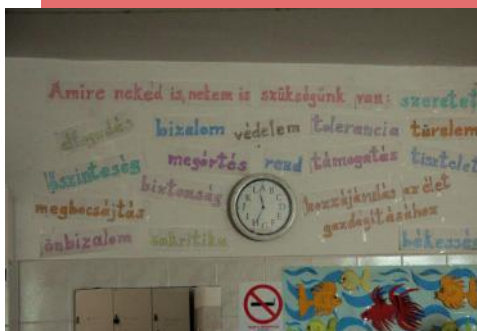 Amire neked is, nekem is szükségünk van: szeretet
elfogadás bizalom védelem tolerancia türelem
őszinteség megértés rend támogatás tisztelet
biztonság
megbocsájtás hozzájárulás az élet
gazdagításához
önbizalom önkritika békesség